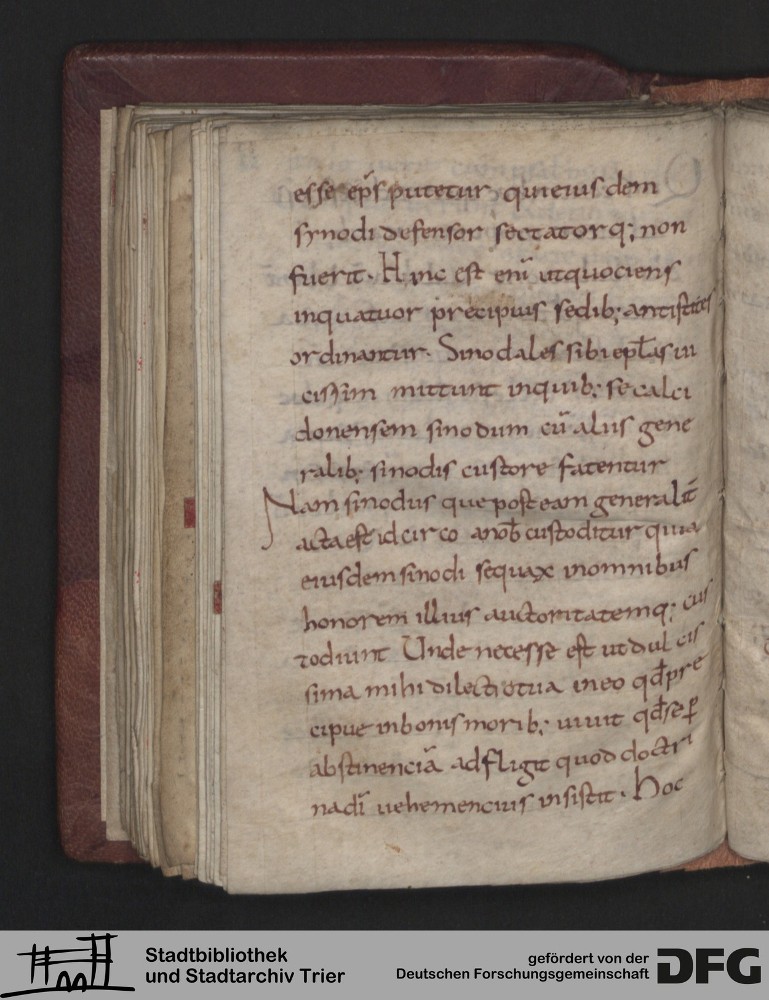 esse ep̄s putetur qui eius dem
synodi defensor sectatorq; non
fuerit · Hinc est eni᷑ ut quociens
inquatuor precipuis sedib; antistites
ordinantur · Sinodales sibi ep̄las ui
cissim mittunt inquib; se calci
donensem sinodum cū aliis gene
ralib; sinodis custore fatentur
Nam sinodus que post eam generalit̄
acta est id circo anob̄ custoditur quia
eiusdem sinodi sequax in omnibus
honorem illius auctoritatemq; cus
todiunt Unde necesse est ut dul cis
sima mihi dilectio tua in eo qđ pre
cipue in bonis morib; uiuit qđ se ꝑ
abstinenciā adfligit quod doctri
nadī uehemencius insistit · Hoc
Stadtbibliothek
und Stadtarchiv Trier
gefördert von der
Deutschen Forschungsgemeinschaft
DFG